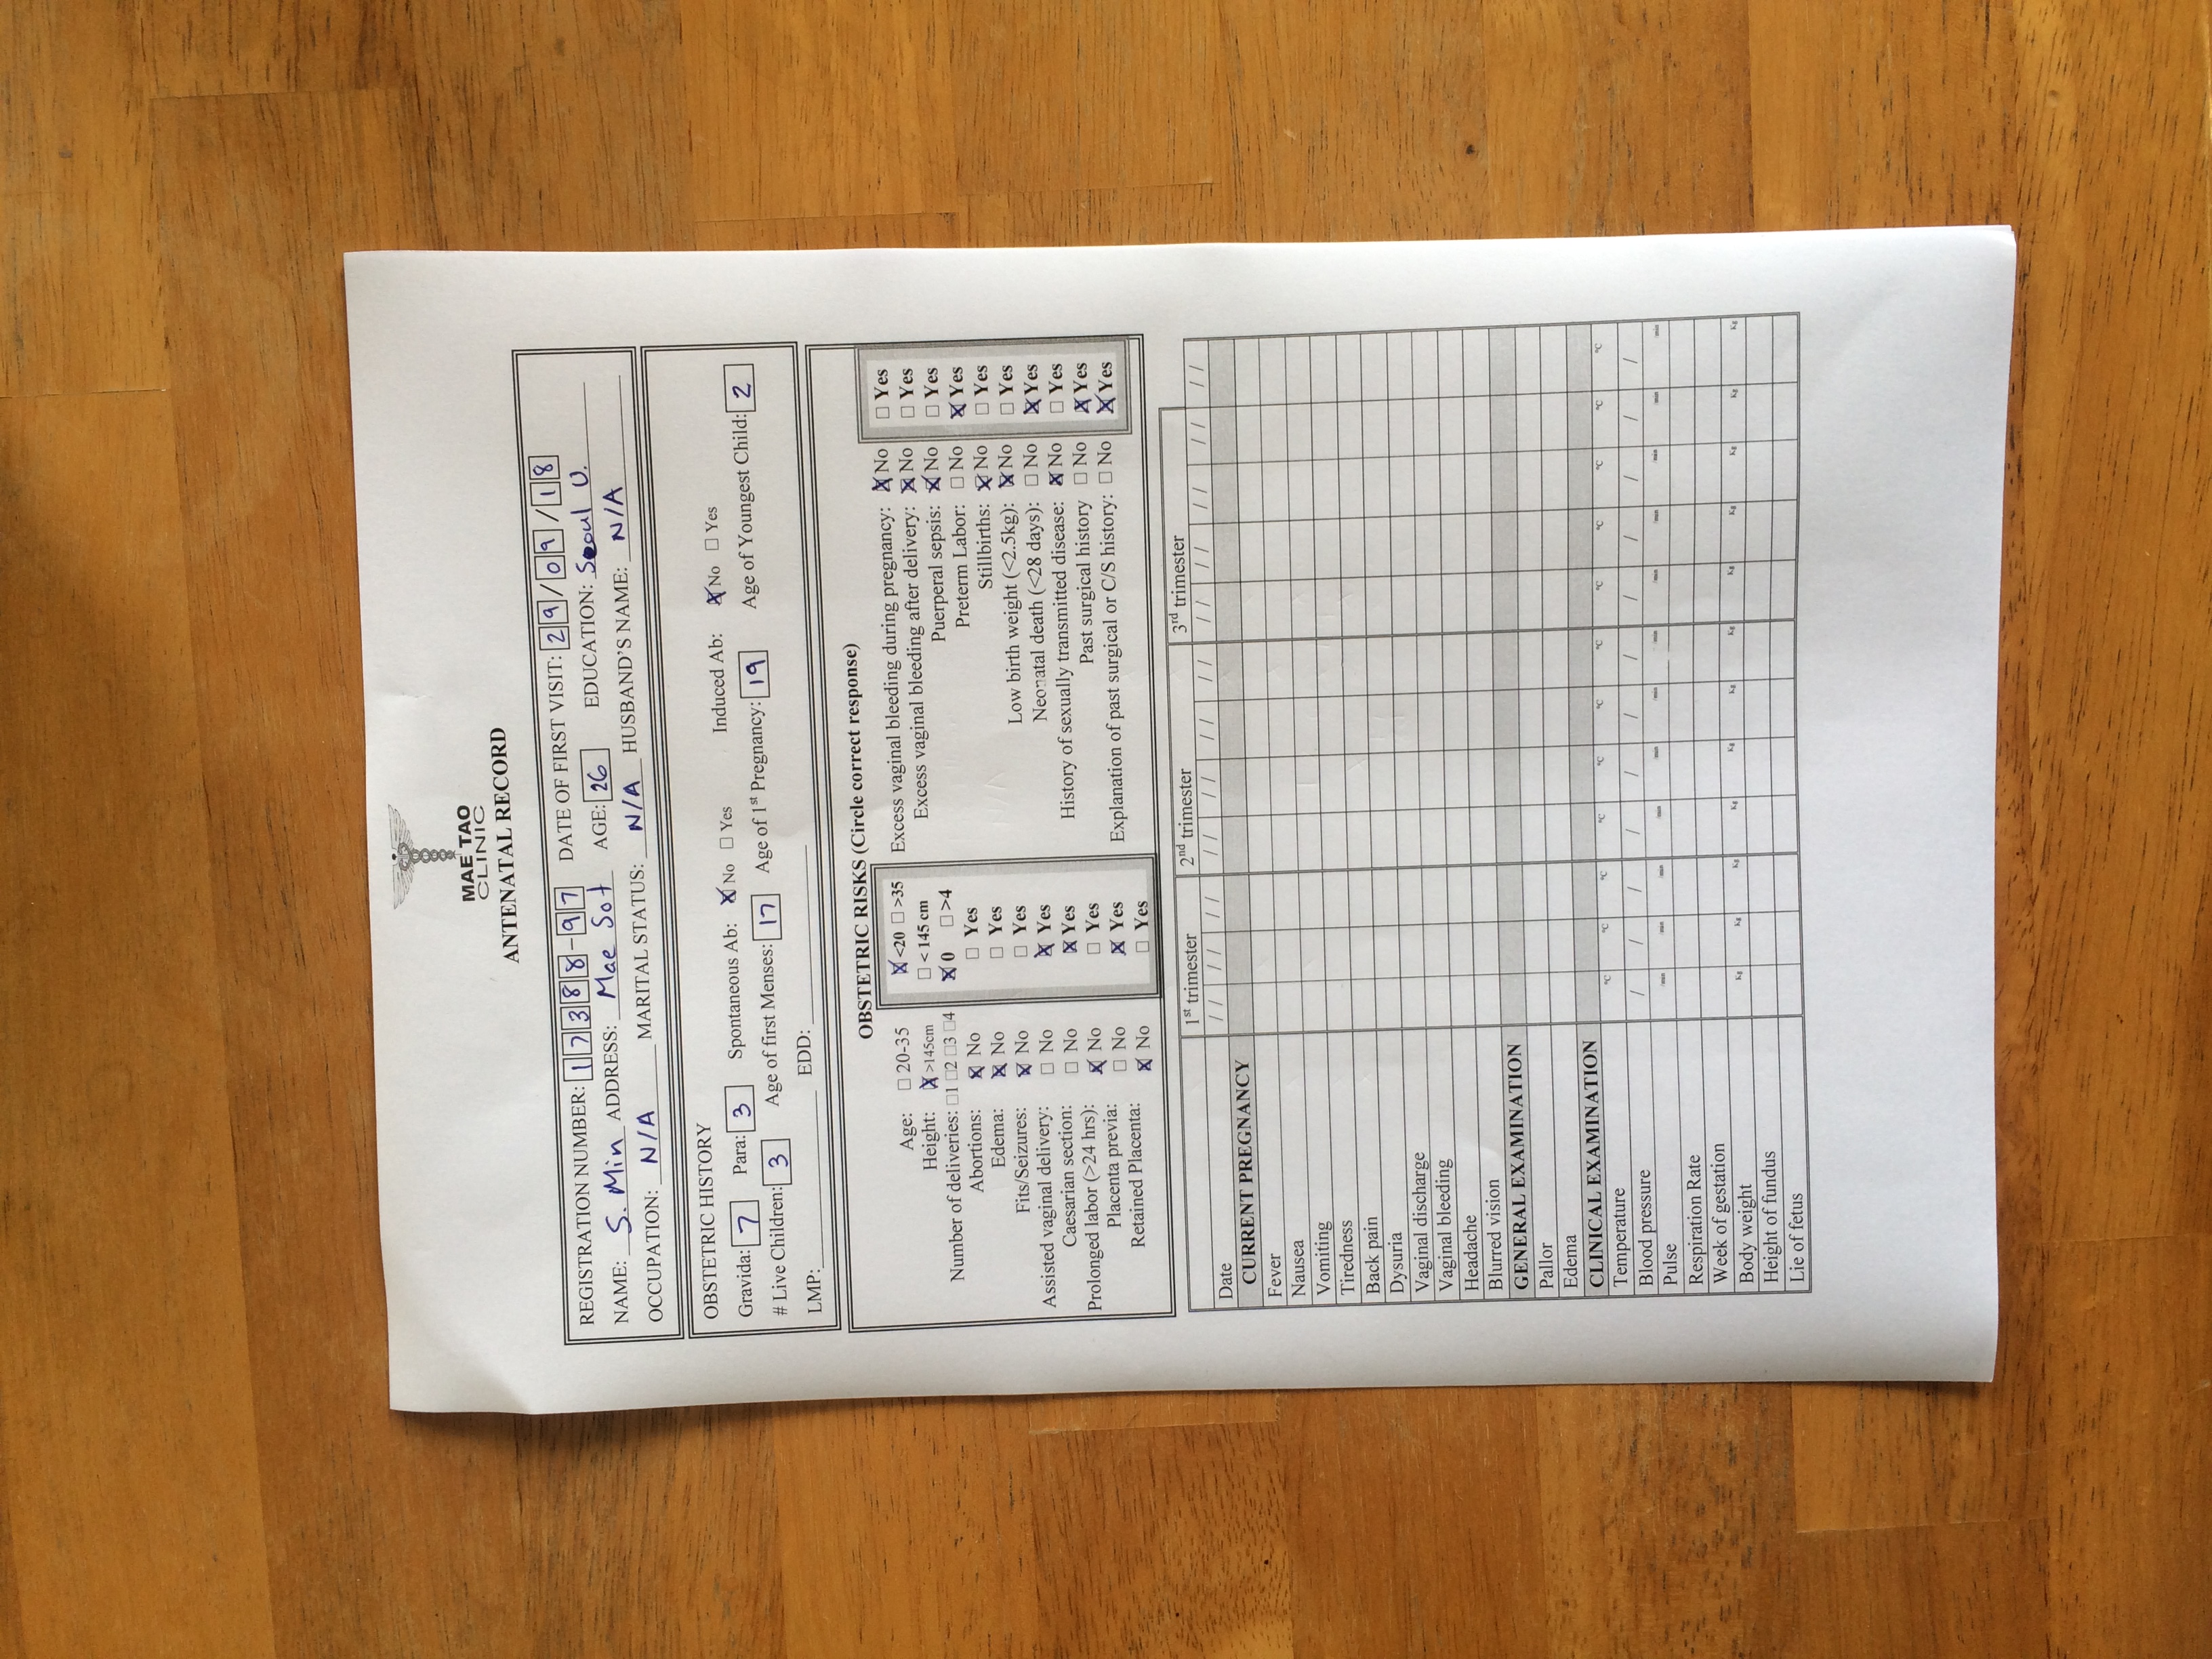 MAE TAO
CLINIC
ANTENATAL RECORD
REGISTRATION NUMBER: 17388-97 DATE OF FIRST VISIT: 29/09/18
NAME: S. Min ADDRESS: Mae Sot AGE: 26 EDUCATION: Seoul U.
OCCUPATION: N/A MARITAL STATUS: N/A HUSBAND'S NAME: N/A
OBSTETRIC HISTORY
Gravida: 7 Para: 3 Spontaneous Ab: ☒ No ☐ Yes Induced Ab: ☒ No ☐ Yes
# Live Children: 3 Age of first Menses: 17 Age of 1st Pregnancy: 19 Age of Youngest Child: 2
LMP: EDD:
OBSTETRIC RISKS (Circle correct response)
Age: ☐ 20-35 ☒ <20 ☐ >35
Height: ☒ >145cm ☐ < 145 cm
Number of deliveries: ☐1 ☐2 ☐3 ☐4 ☒ 0 ☐ >4
Abortions: ☒ No ☐ Yes
Edema: ☒ No ☐ Yes
Fits/Seizures: ☒ No ☐ Yes
Assisted vaginal delivery: ☐ No ☒ Yes
Caesarian section: ☐ No ☒ Yes
Prolonged labor (>24 hrs): ☒ No ☐ Yes
Placenta previa: ☐ No ☒ Yes
Retained Placenta: ☒ No ☐ Yes
Excess vaginal bleeding during pregnancy: ☒ No ☐ Yes
Excess vaginal bleeding after delivery: ☒ No ☐ Yes
Puerperal sepsis: ☒ No ☐ Yes
Preterm Labor: ☐ No ☒ Yes
Stillbirths: ☒ No ☐ Yes
Low birth weight (<2.5kg): ☒ No ☐ Yes
Neonatal death (<28 days): ☐ No ☒ Yes
History of sexually transmitted disease: ☒ No ☐ Yes
Past surgical history ☐ No ☒ Yes
Explanation of past surgical or C/S history: ☐ No ☒ Yes
1st trimester 2nd trimester 3rd trimester
Date / / / / / / / / / / / / / / / / / / / / / / / /
CURRENT PREGNANCY
Fever
Nausea
Vomiting
Tiredness
Back pain
Dysuria
Vaginal discharge
Vaginal bleeding
Headache
Blurred vision
GENERAL EXAMINATION
Pallor
Edema
CLINICAL EXAMINATION
Temperature °C °C °C °C °C °C °C °C °C °C °C °C
Blood pressure / / / / / / / / / / / /
Pulse /min /min /min /min /min /min /min /min /min /min /min /min
Respiration Rate
Week of gestation
Body weight Kg Kg Kg Kg Kg Kg Kg Kg Kg Kg Kg Kg
Height of fundus
Lie of fetus